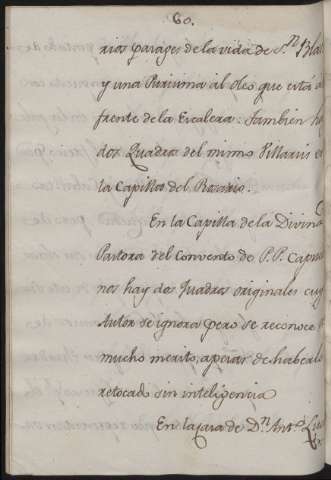 60.
rios parages de la vida de S.n Blas
y una Purisima al oleo que está a
frente de la Escalera. Tambien h
dos Quadros del mismo Villanis e
la Capilla del Rosario.
En la Capilla de la Divin
Pastora del Convento de P.P. Capu
nos hay dos Quadros originales cuy
Autor se ignora pero se reconoce
mucho merito, apesar de haberlo
retocado sin inteligencia
En la casa de D.n Ant.o